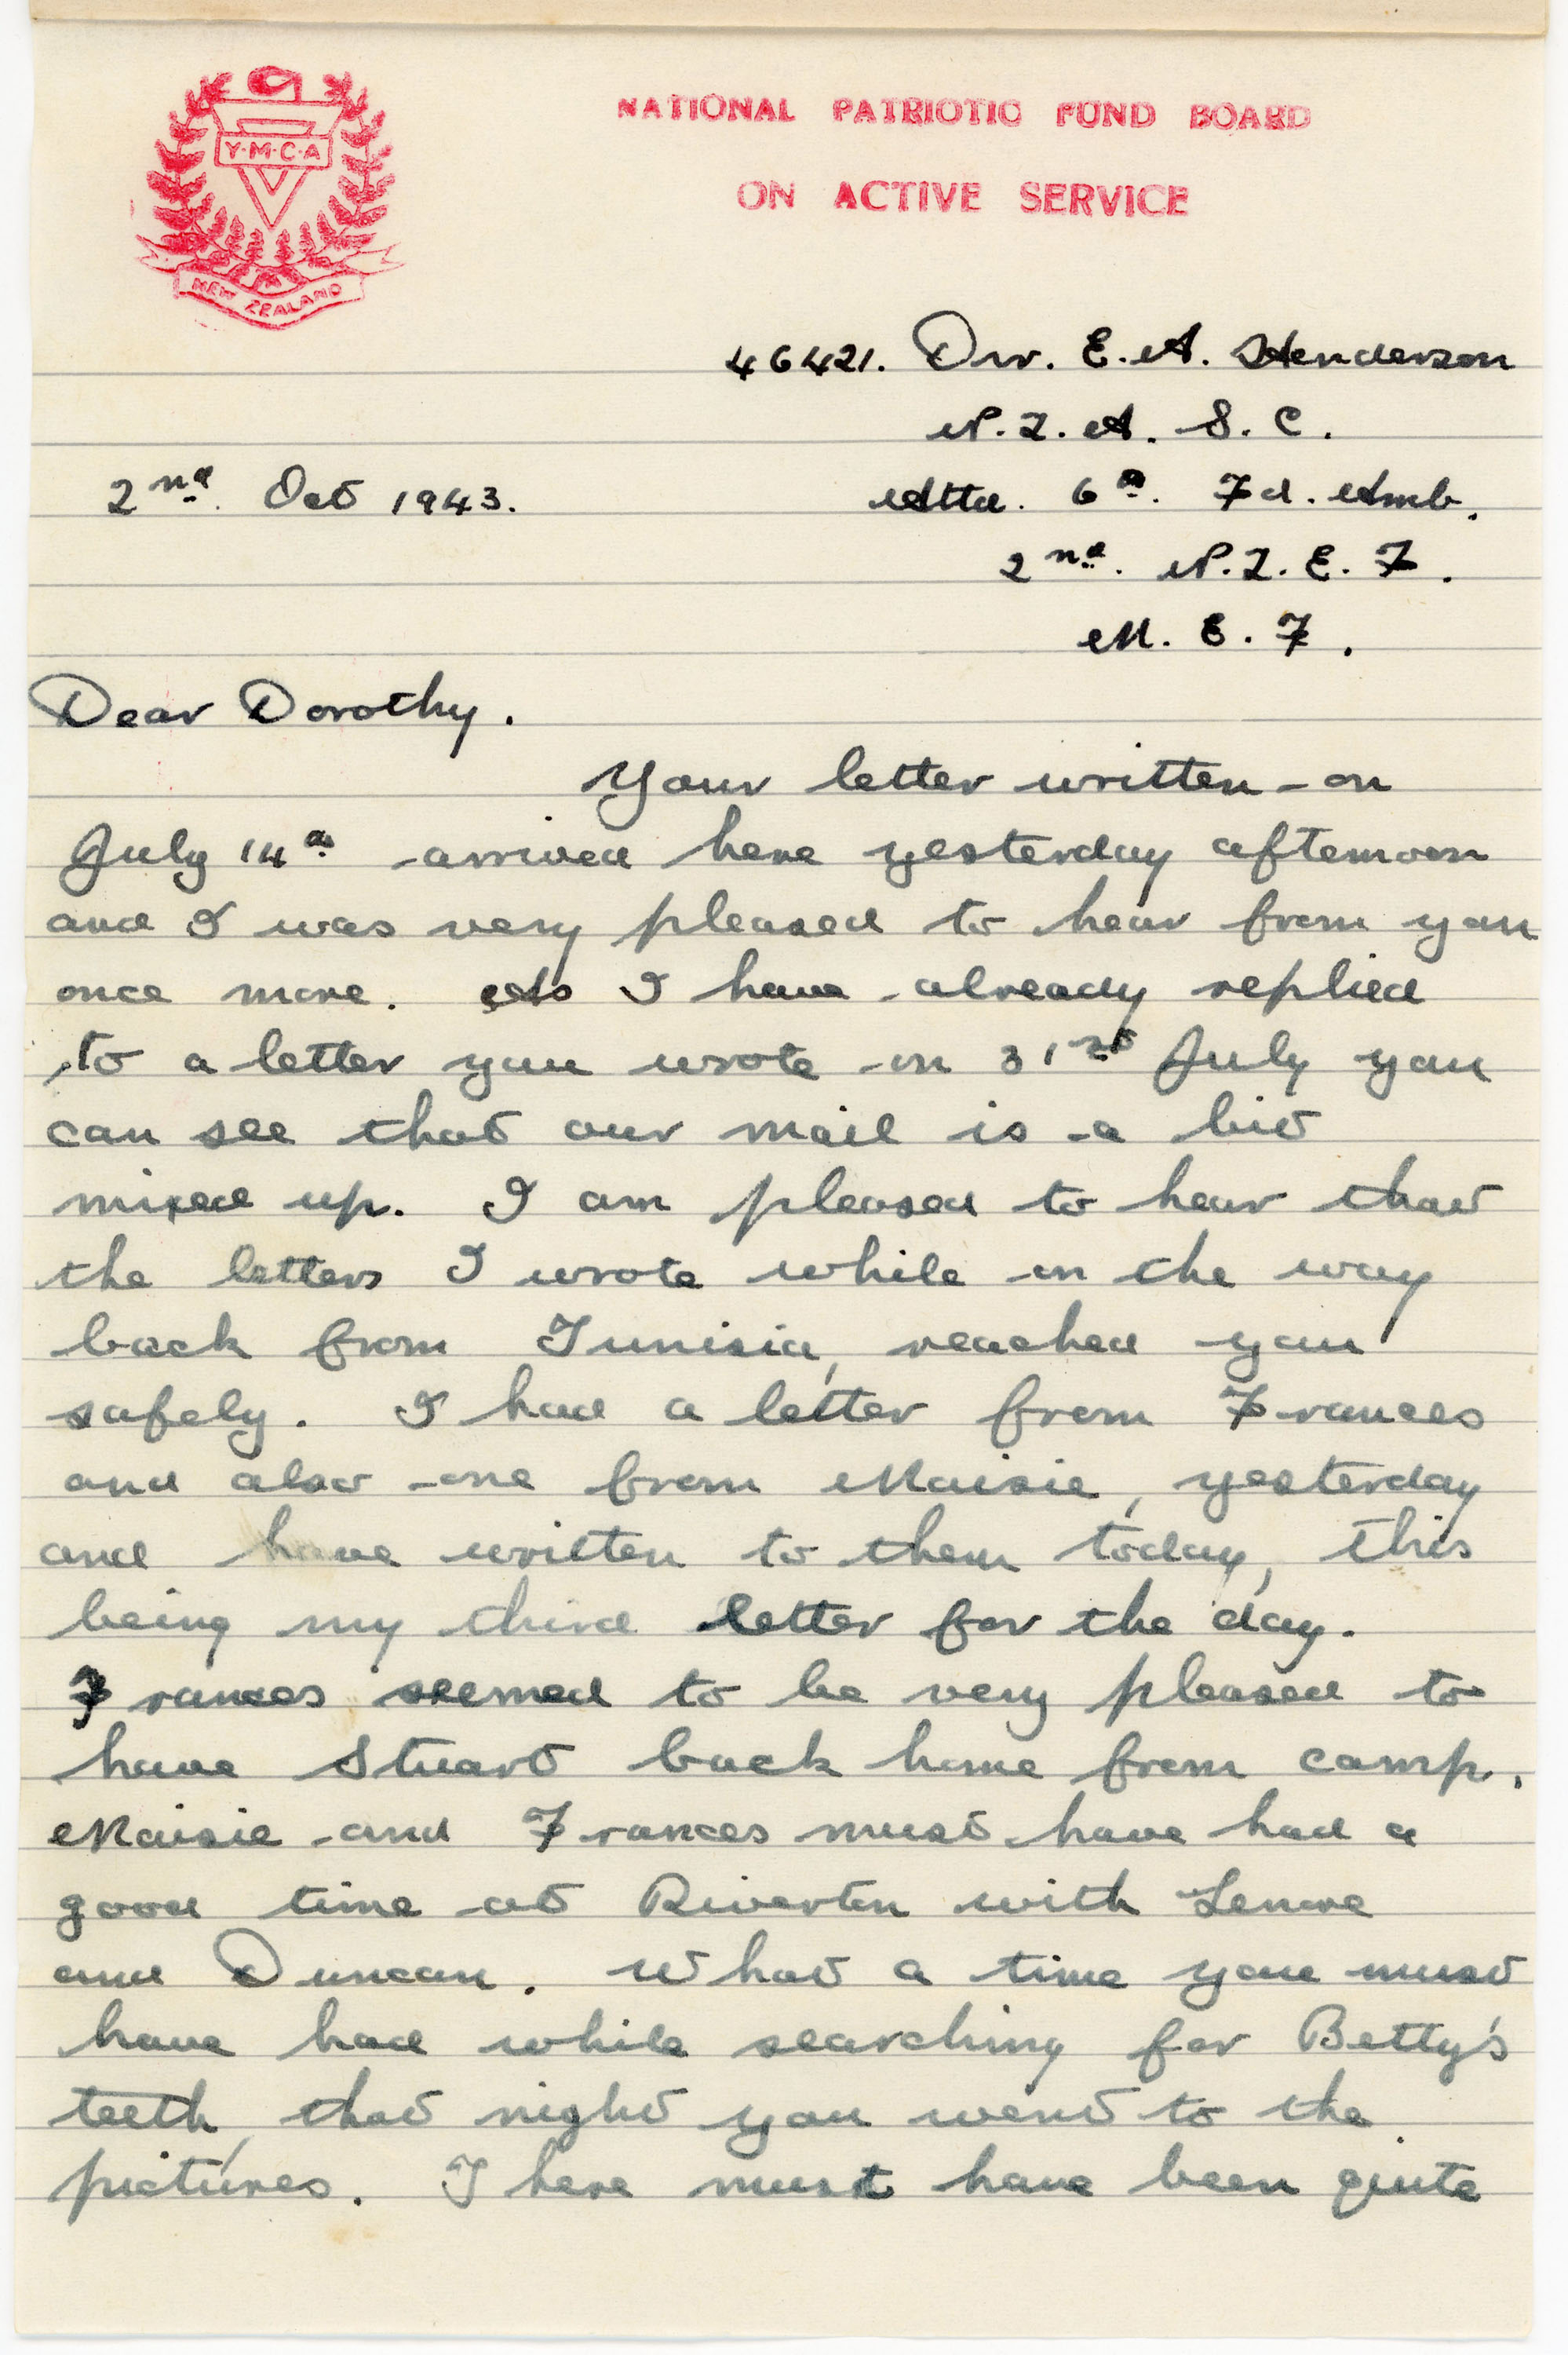 Y·M·C·A
NEW ZEALAND
NATIONAL PATRIOTIC FUND BOARD
ON ACTIVE SERVICE
46421. Dvr. E. A. Henderson
N. Z. A. S. C.
2nd. Oct 1943.
Attd. 6th. Fd. Amb.
2nd. N. Z. E. F.
M. E. F.
Dear Dorothy.
Your letter written on
July 14th arrived here yesterday afternoon
and I was very pleased to hear from you
once more. As I have already replied
to a letter you wrote on 31st July you
can see that our mail is a bit
mixed up. I am pleased to hear that
the letters I wrote while on the way
back from Tunisia, reached you
safely. I had a letter from Frances
and also one from Maisie, yesterday
and have written to them today, this
being my third letter for the day.
Frances seemed to be very pleased to
have Stuart back home from camp.
Maisie and Frances must have had a
good time at Riverton with Lenore
and Duncan. What a time you must
have had while searching for Betty's
teeth, that night you went to the
pictures. There must have been quite